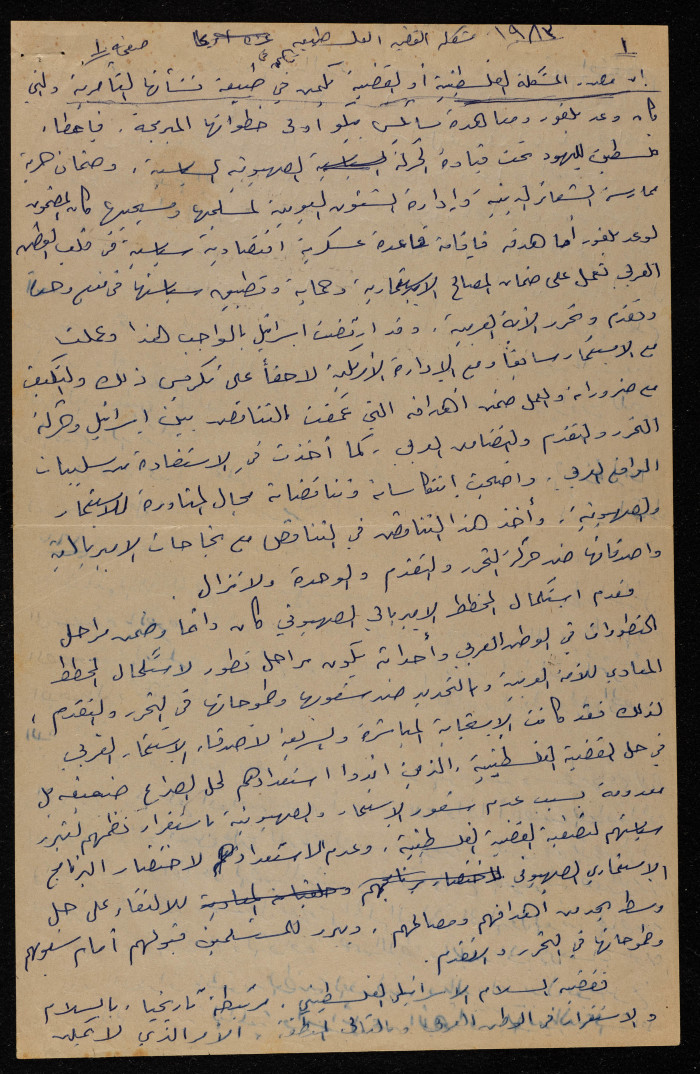 ١
١٩/٣ مشكلة القضية الفلسطينية صفحة ١
ان مصدر المشكلة الفلسطينية أو القضية تكمن في طبيعة نشأتها التآمرية والتي
كان وعد بلفور ومعاهدة سايكس بيكو اولى خطواتها المبرمجة. فإعطاء
فلسطين لليهود تحت قيادة الحركة الصهيونية السياسية، وضمان حرية
ممارسة الشعائر الدينية وإدارة الشئون اليومية لمسلميها ومسيحييها كان المضمون
لوعد بلفور أما هدفه فإقامة قاعدة عسكرية اقتصادية سياسية في قلب الوطن
العربي تعمل على ضمان المصالح الاستعمارية وحماية وتطبيق سياستها في منع وحدة
وتقدم وتحرر الأمة العربية. وقد ارتضت اسرائيل بالواجب هذا وعملت
مع الاستعمار سابقاً ومع الإدارة الأمريكية لاحقاً على تكريس ذلك والتكيف
مع ضروراته والعمل ضمن اهدافه التي عمقت التناقض بين اسرائيل وحركة
التحرر والتقدم والتضامن العربي. كما أخذت في الاستفادة من سلبيات
الواقع العربي. واضحت انتكاساته وتناقضاته مجال المناورة للاستعمار
والصهيونية. وأخذ هذا التناقض في التناقص مع نجاحات الامبريالية
واصدقائها ضد حركة التحرر والتقدم والوحدة ولا تزال.
فعدم استكمال المخطط الامبريالي الصهيوني كان دائما وضمن مراحل
التطورات في الوطن العربي وأحداثه يكون مراحل تطور لاستكمال المخطط
المعادي للأمة العربية وبالتحديد ضد شعوبها وطموحاتها في التحرر والتقدم،
لذلك فقد كانت الاستجابة المباشرة والسريعة لأصدقاء الاستعمار الغربي
في حل القضية الفلسطينية، الذين ابدوا استعدادهم لحل الصراع ضعيفة بل
معدومة بسبب عدم شعور الاستعمار والصهيونية باستقرار نظمهم لتمرر
سياستهم لتصفية القضية الفلسطينية، وعدم الاستعداد لاختصار البرنامج
الاستعماري الصهيوني للالتقاء على حل
وسط يجد من اهدافهم ومصالحهم. ويبرر للمستسلمين قبولهم أمام شعوبهم
وطموحاتها في التحرر والتقدم.
فقضية السلام الاسرائيلي الفلسطيني. مرتبطة تاريخيا، بالسلام
والاستقرار في الوطن العربي وبالتالي المنطقة. الأمر الذي لا يمكن